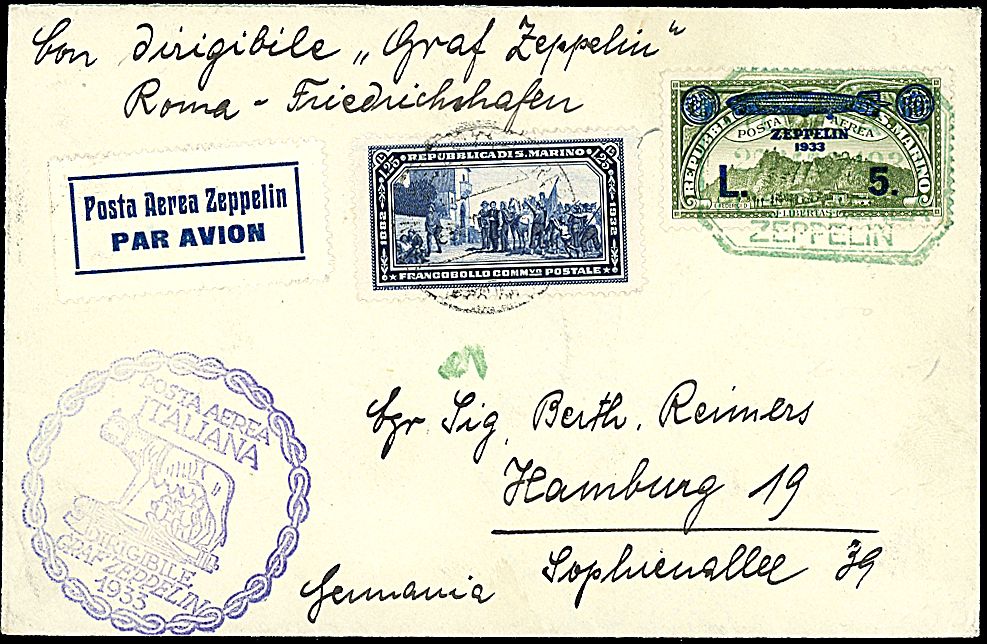 Con dirigibile „Graf Zeppelin"
Roma - Friedrichshafen
Posta Aerea Zeppelin
PAR AVION
REPUBBLICA DI S. MARINO
1,25 1,25
1882 1882
FRANCOBOLLO COMMVO POSTALE
REPUBBLICA S. MARINO
POSTA AEREA
ZEPPELIN
1933
L. 5.
LIBERTAS
ZEPPELIN
POSTA AEREA
ITALIANA
DIRIGIBILE
GRAF ZEPPELIN
1933
Egr Sig. Berth. Reimers
Hamburg 19
Sophienallee 39
Germania